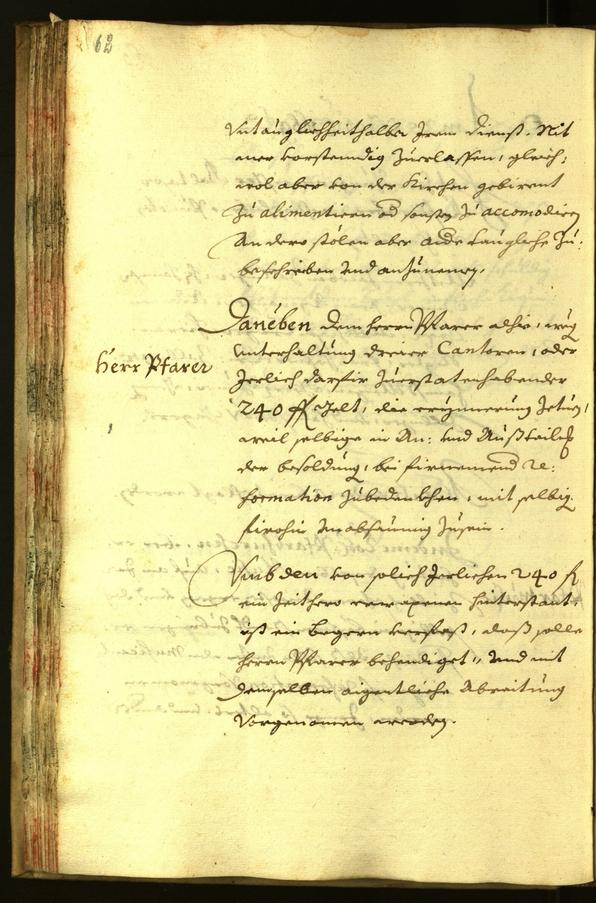 62
Vntauglichheithalber Irem dienst. Nit
aner vorstendig Zuerlassen, gleich-
wol aber von der Kirchen gebirent
Zu alimentiern od sonsten Zu accomodiern
An dero stölen aber ande taugliche Zu-
beschreiben vnd anzunemen.
Daneben dem herrn Pfarer alhie, weg
Herr Pfarer
vnterhaltung dreier Cantoren, oder
Jerlich darfir Zuerstaten habender
240 fl gelt, die erinnerung Zetun,
weil selbige in An- vnd Außteilung
der besoldung, bei firnemend Re-
formation Zubedenkhen, mit selbig
firohin
Vmb den von solich Jerlichen 240 fl
ein Zeithero hinterstant,
ist ein begern verfast, daß solle
herrn Pfarer behendiget, vnd mit
demselben aigentliche Abreitung
Vorgenomen werden.